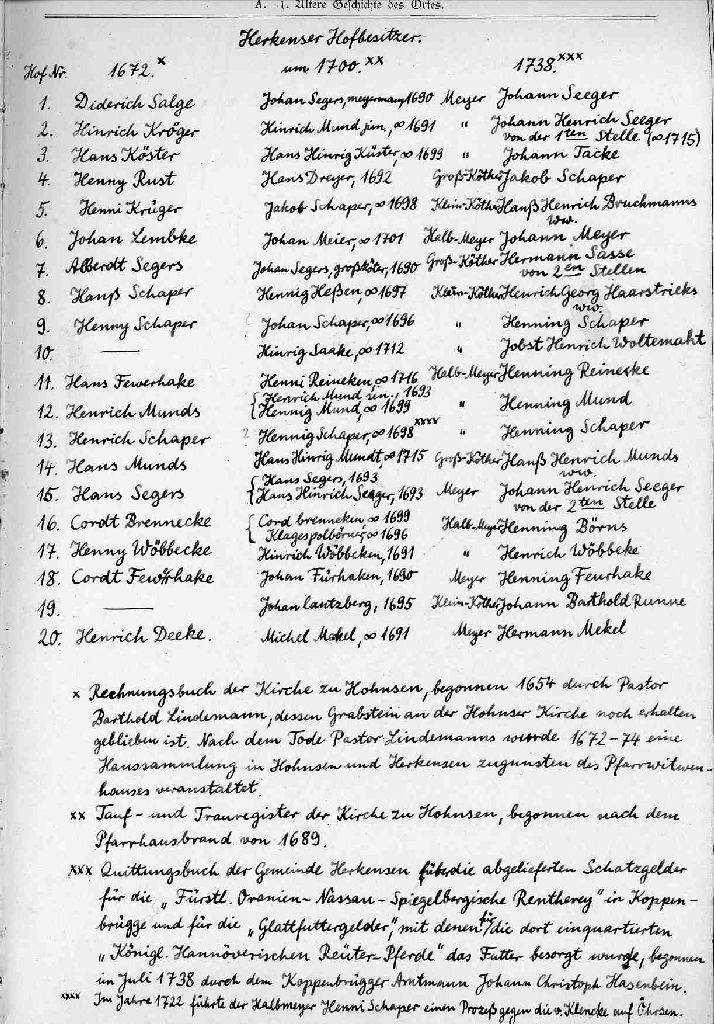 A. 1. Ältere Geschichte des Ortes.
Herkenser Hofbesitzer.
Hof Nr. 1672.x um 1700.xx 1738.xxx
1. Diderich Salge Johan Segers, meyermang 1690 Meyer Johann Seeger
2. Hinrich Kröger Hinrich Mund jun, ∞ 1691 " Johann Henrich Seeger
von der 1ten Stelle (∞ 1715)
3. Hans Köster Hans Hinrig Küster, ∞ 1699 " Johann Tacke
4. Henny Rust Hans Dreyer, 1692 Groß-Köther Jakob Schaper
5. Henni Krüger Jakob Schaper, ∞ 1698 Klein-Köther Hanß Henrich Bruchmanns
ww.
6. Johan Lembke Johan Meier, ∞ 1701 Halb-Meyer Johann Meyer
7. Albberdt Segers Johan Segers, großköter, 1690 Groß-Köther Hermann Sasse
von 2en Stellen
8. Hanß Schaper Hennig Heßen, ∞ 1697 Klein-Köther Henrich Georg Haarstricks
ww.
9. Henny Schaper Johan Schaper, ∞ 1696 " Henning Schaper
10. — Hinrig Saake, ∞ 1712 " Jobst Henrich Woltemaht
11. Hans Fewerhake Henni Reineken, ∞ 1716 Halb-Meyer Henning Reinecke
{ Henrich Mund 1693
12. Henrich Munds { Hennig Mund, ∞ 1699 " Henning Mund
13. Henrich Schaper ? Hennig Schaper, ∞ 1698xxxx " Henning Schaper
14. Hans Munds Hans Hinrig Mundt, ∞ 1715 Groß-Köther Hanß Henrich Munds
ww.
{ Hans Segers, 1693
15. Hans Segers { Hans Hinrich Seager, 1693 Meyer Johann Henrich Seeger
von der 2ten Stelle
16. Cordt Brennecke { Cord brenneken, ∞ 1699 Halb-Meyer Henning Börns
{ Klagespolbörn, ∞ 1696
17. Henny Wöbbecke Hinrich Wöbbeken, 1691 " Henrich Wöbbeke
18. Cordt Fewrhake Johan Fürhaken, 1690 Meyer Henning Feurhake
19. — Johan lautzberg, 1695 Klein-Köther Johann Barthold Runne
20. Henrich Deeke. Michel Mekel, ∞ 1691 Meyer Hermann Mekel
x Rechnungsbuch der Kirche zu Hohnsen, begonnen 1654 durch Pastor
Barthold Lindemann, dessen Grabstein an der Hohnser Kirche noch erhalten
geblieben ist. Nach dem Tode Pastor Lindemanns wurde 1672-74 eine
Haussammlung in Hohnsen und Herkensen zugunsten des Pfarrwitwen-
hauses veranstaltet.
xx Tauf- und Trauregister der Kirche zu Hohnsen, begonnen nach dem
Pfarrhausbrand von 1689.
xxx Quittungsbuch der Gemeinde Herkensen über die abgelieferten Schatzgelder
für die „Fürstl. Oranien-Nassau-Spiegelbergische Rentherey" in Koppen-
brügge und für die „Glattfuttergelder", mit denen für die dort einquartierten
„Königl. Hannöverischen Reüter-Pferde" das Futter besorgt wurde, begonnen
im Juli 1738 durch dem Koppenbrügger Amtmann Johann Christoph Hasenbein.
xxxx Im Jahre 1722 führte der Halbmeyer Henni Schaper einen Prozeß gegen die v. Klencke auf Öhrsen.